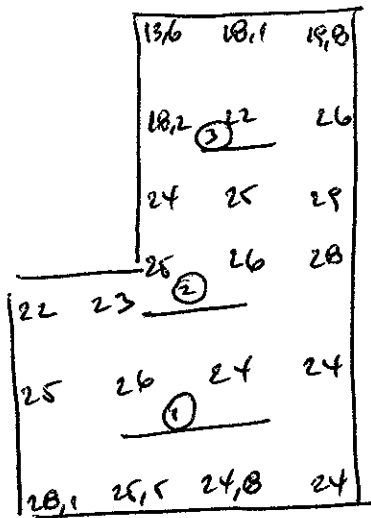 13,6 18,1 19,8
18,2 22 26
3
24 25 29
25 26 28
2
22 23
25 26 24 24
1
28,1 25,5 24,8 24